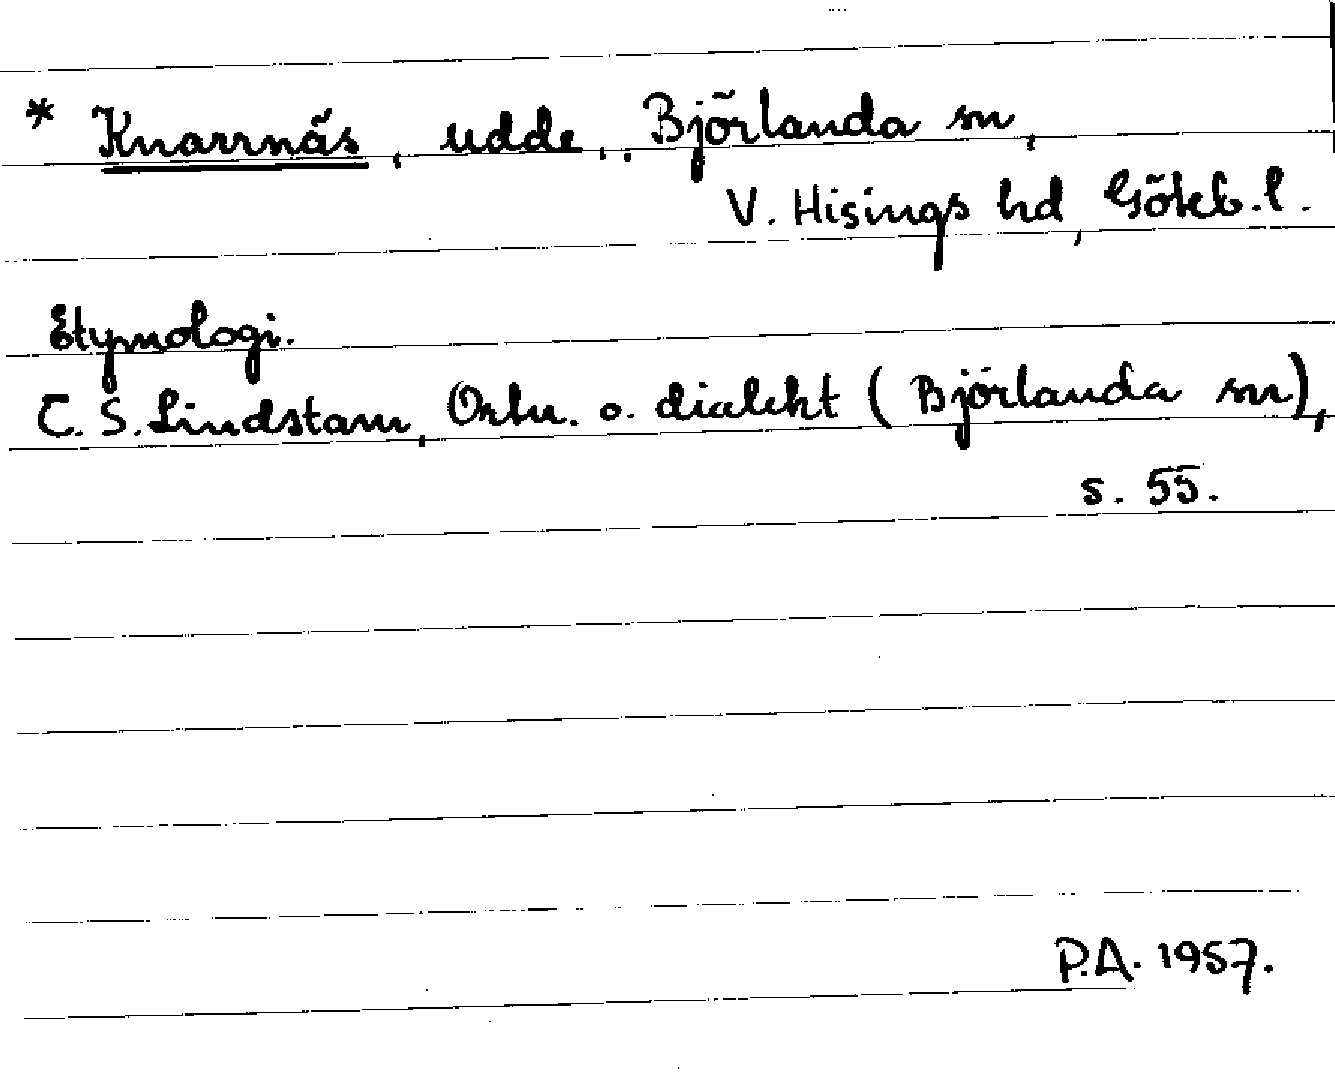 * Knarrnäs, udde, Björlanda sn,
V. Hisings hd, Göteb. l.
Etymologi.
C. S. Lindstam, Ortn. o. dialekt (Björlanda sn),
s. 55.
P.A. 1957.